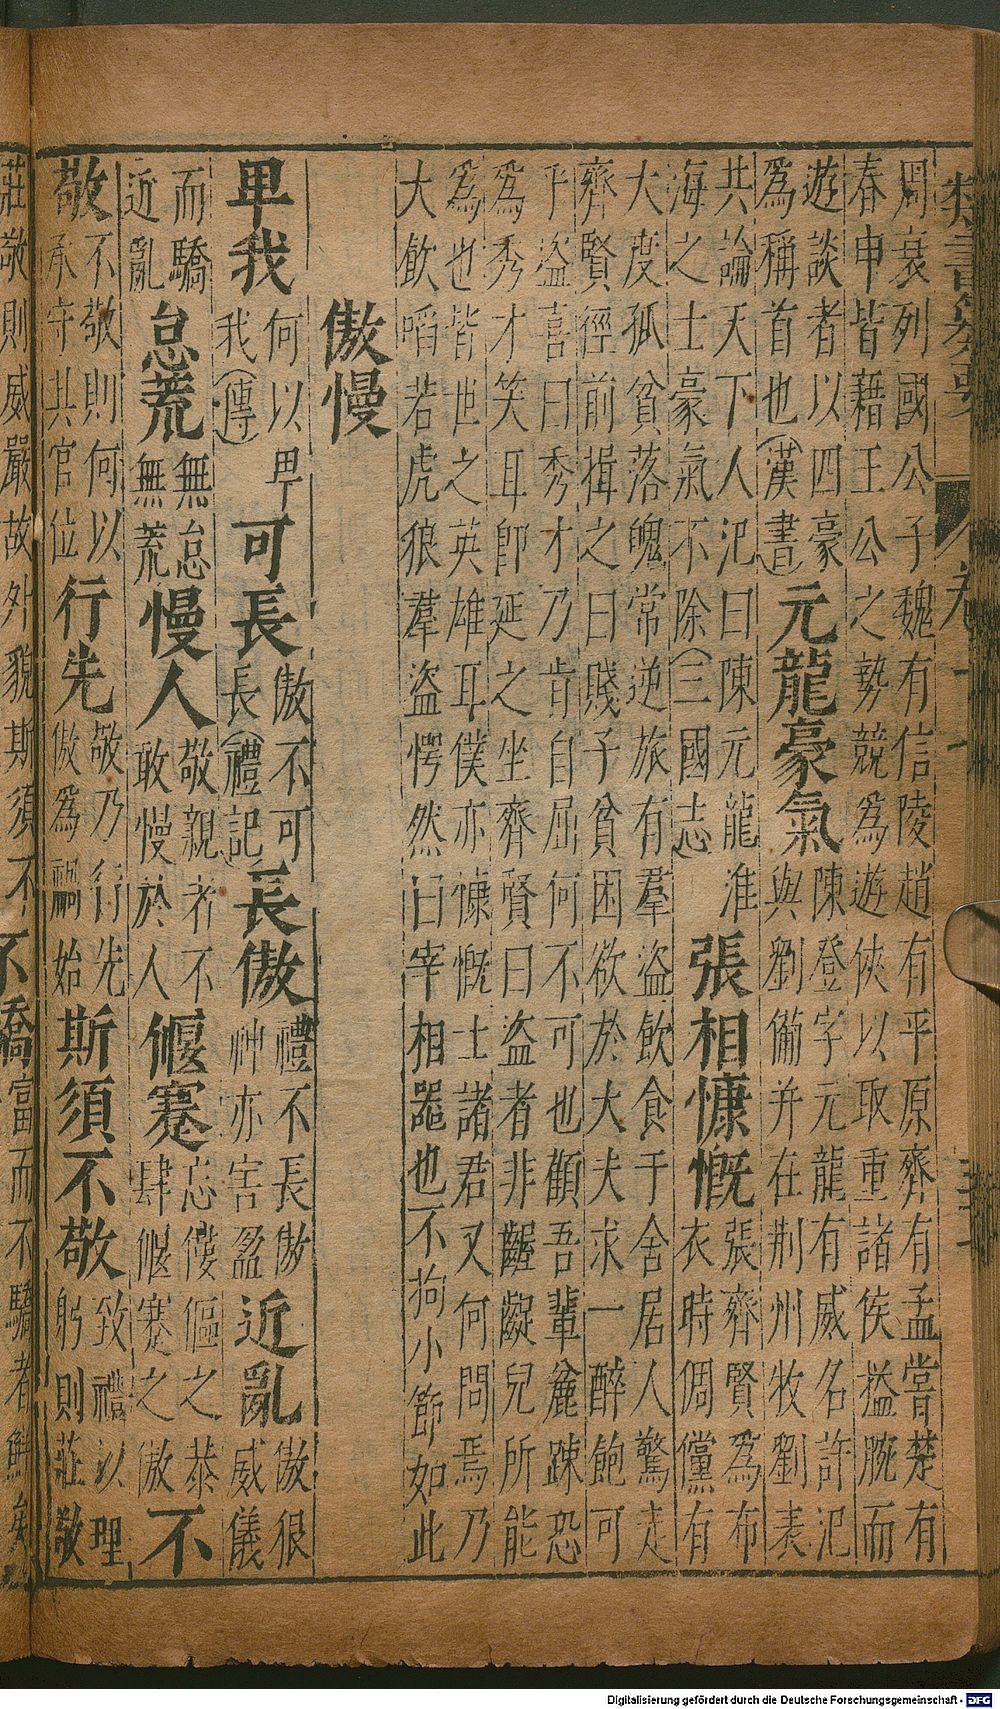 類書纂要
周衰列國公子魏有信陵趙有平原齊有孟嘗楚有
春申皆藉王公之勢競爲遊俠以取重諸侯搤腕而
遊談者以四豪
爲稱首也(漢書)
元龍豪氣
陳登字元龍有威名許汜
與劉備并在荆州牧劉表
共論天下人汜曰陳元龍淮
海之士豪氣不除(三國志)
張相慷慨
張齊賢爲布
衣時倜儻有
大度孤貧落魄常逆旅有羣盜飲食于舍居人驚走
齊賢徑前揖之曰賤子貧困欲於大夫求一醉飽可
乎盜喜曰秀才乃肯自屈何不可也顧吾輩麄踈恐
爲秀才笑耳卽延之坐齊賢曰盜者非齷齪兒所能
爲也皆世之英雄耳僕亦慷慨士諸君又何問焉乃
大飲啗若虎狼羣盜愕然曰宰相噐也不拘小節如此
傲慢
卑我
何以卑
我(傳)
可長
傲不可
長(禮記)
長傲
禮不長傲
神亦害盈
近亂
傲很
威儀
而驕
近亂
怠荒
無怠
無荒
慢人
敬親者不
敢慢於人
偃蹇
忘僂傴之恭
肆偃蹇之傲
不
敬
不敬則何以
承守共官位
行先
敬乃行先
傲爲禍始
斯須不敬
致禮以理
躬則莊敬
莊敬則威嚴故外貌斯須不
不驕
富而不驕者鮮矣
Digitalisierung gefördert durch die Deutsche Forschungsgemeinschaft - DFG